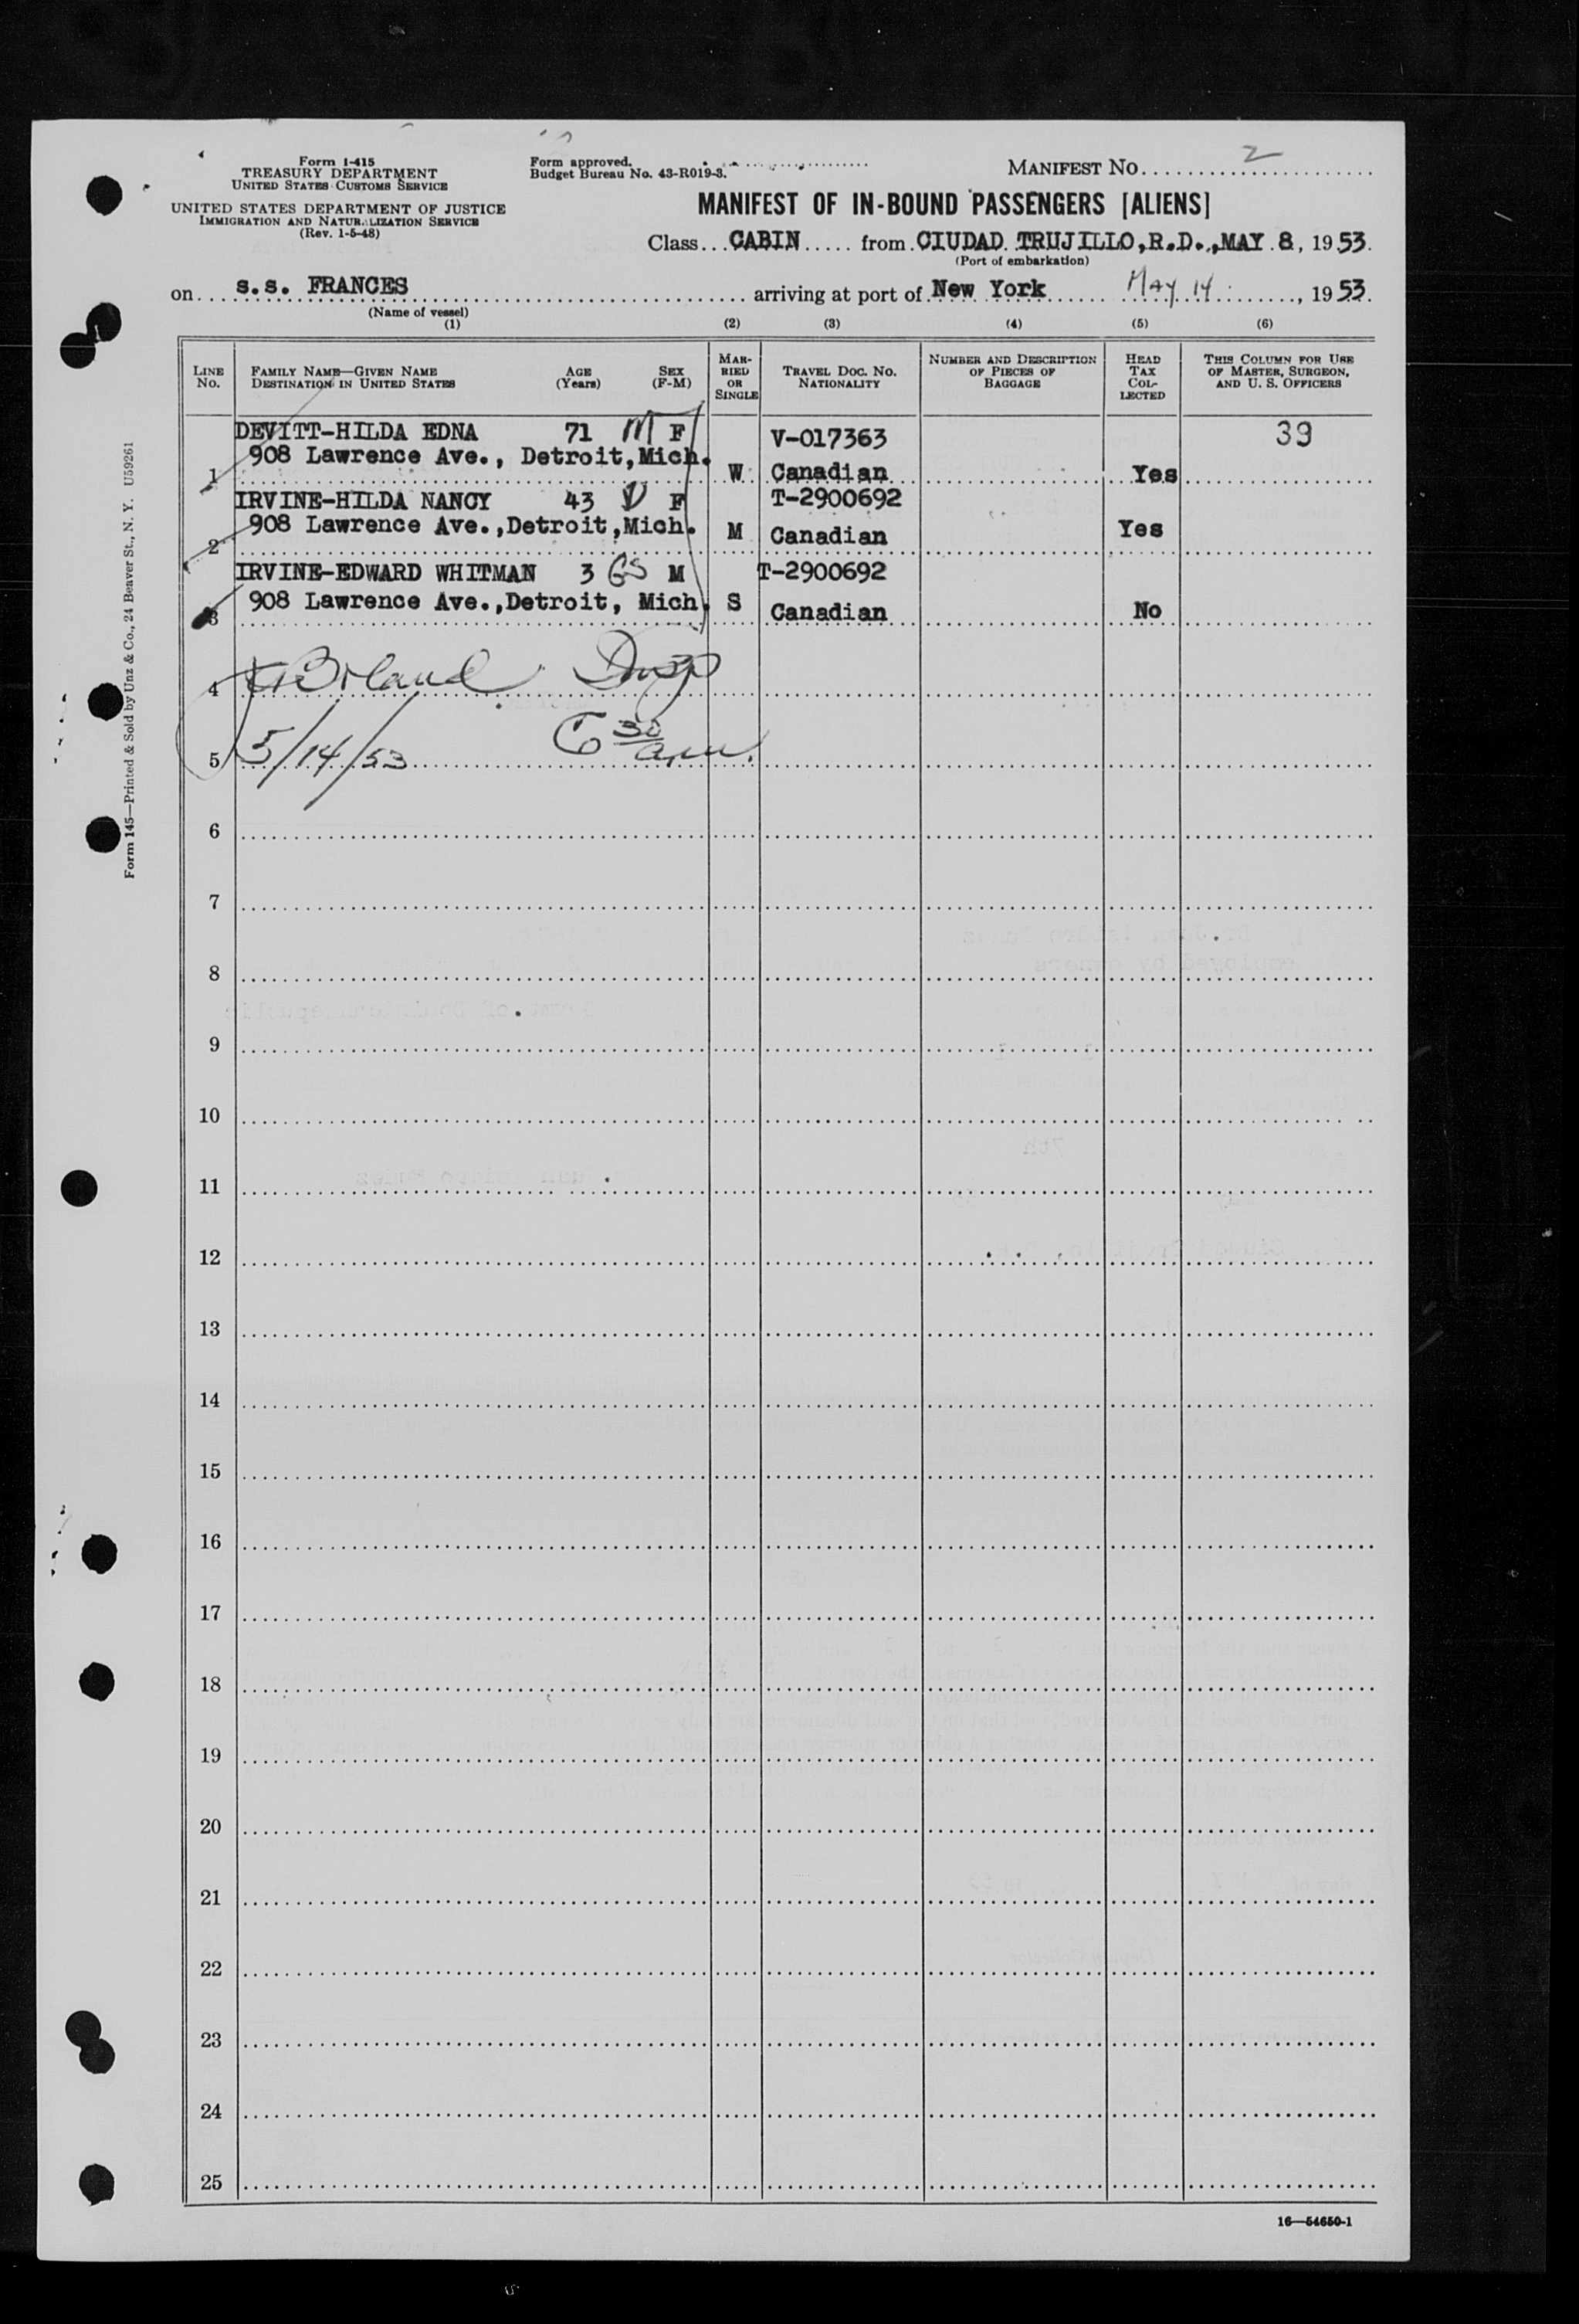 Form I-415
TREASURY DEPARTMENT
UNITED STATES CUSTOMS SERVICE
UNITED STATES DEPARTMENT OF JUSTICE
IMMIGRATION AND NATURALIZATION SERVICE
(Rev. 1-5-48)
Form approved.
Budget Bureau No. 43-R019-3.
MANIFEST No. 2
MANIFEST OF IN-BOUND PASSENGERS [ALIENS]
Class CABIN from CIUDAD TRUJILLO, R.D., MAY 8, 1953.
(Port of embarkation)
on s.s. FRANCES arriving at port of New York May 14, 1953.
(Name of vessel)
(1) (2) (3) (4) (5) (6)
LINE No. FAMILY NAME—GIVEN NAME DESTINATION IN UNITED STATES AGE (Years) SEX (F-M) MARRIED OR SINGLE TRAVEL DOC. NO. NATIONALITY NUMBER AND DESCRIPTION OF PIECES OF BAGGAGE HEAD TAX COLLECTED THIS COLUMN FOR USE OF MASTER, SURGEON, AND U. S. OFFICERS
DEVITT-HILDA EDNA 71 M F V-017363 39
1 908 Lawrence Ave., Detroit,Mich. W Canadian Yes
IRVINE-HILDA NANCY 43 V F T-2900692
2 908 Lawrence Ave.,Detroit,Mich. M Canadian Yes
IRVINE-EDWARD WHITMAN 3 GS M T-2900692
3 908 Lawrence Ave.,Detroit, Mich. S Canadian No
4 Insp
5 5/14/53 6 30 a.m.
6
7
8
9
10
11
12
13
14
15
16
17
18
19
20
21
22
23
24
25
16—54650-1
Form 145—Printed & Sold by Unz & Co., 24 Beaver St., N. Y. U59261